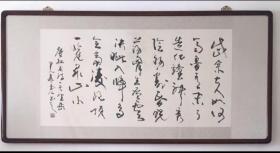 岱宗夫如何
齊魯青未了
造化鍾神秀
陰陽割昏曉
蕩胸生層雲
決眥入歸鳥
會當凌絕頂
一覽衆山小